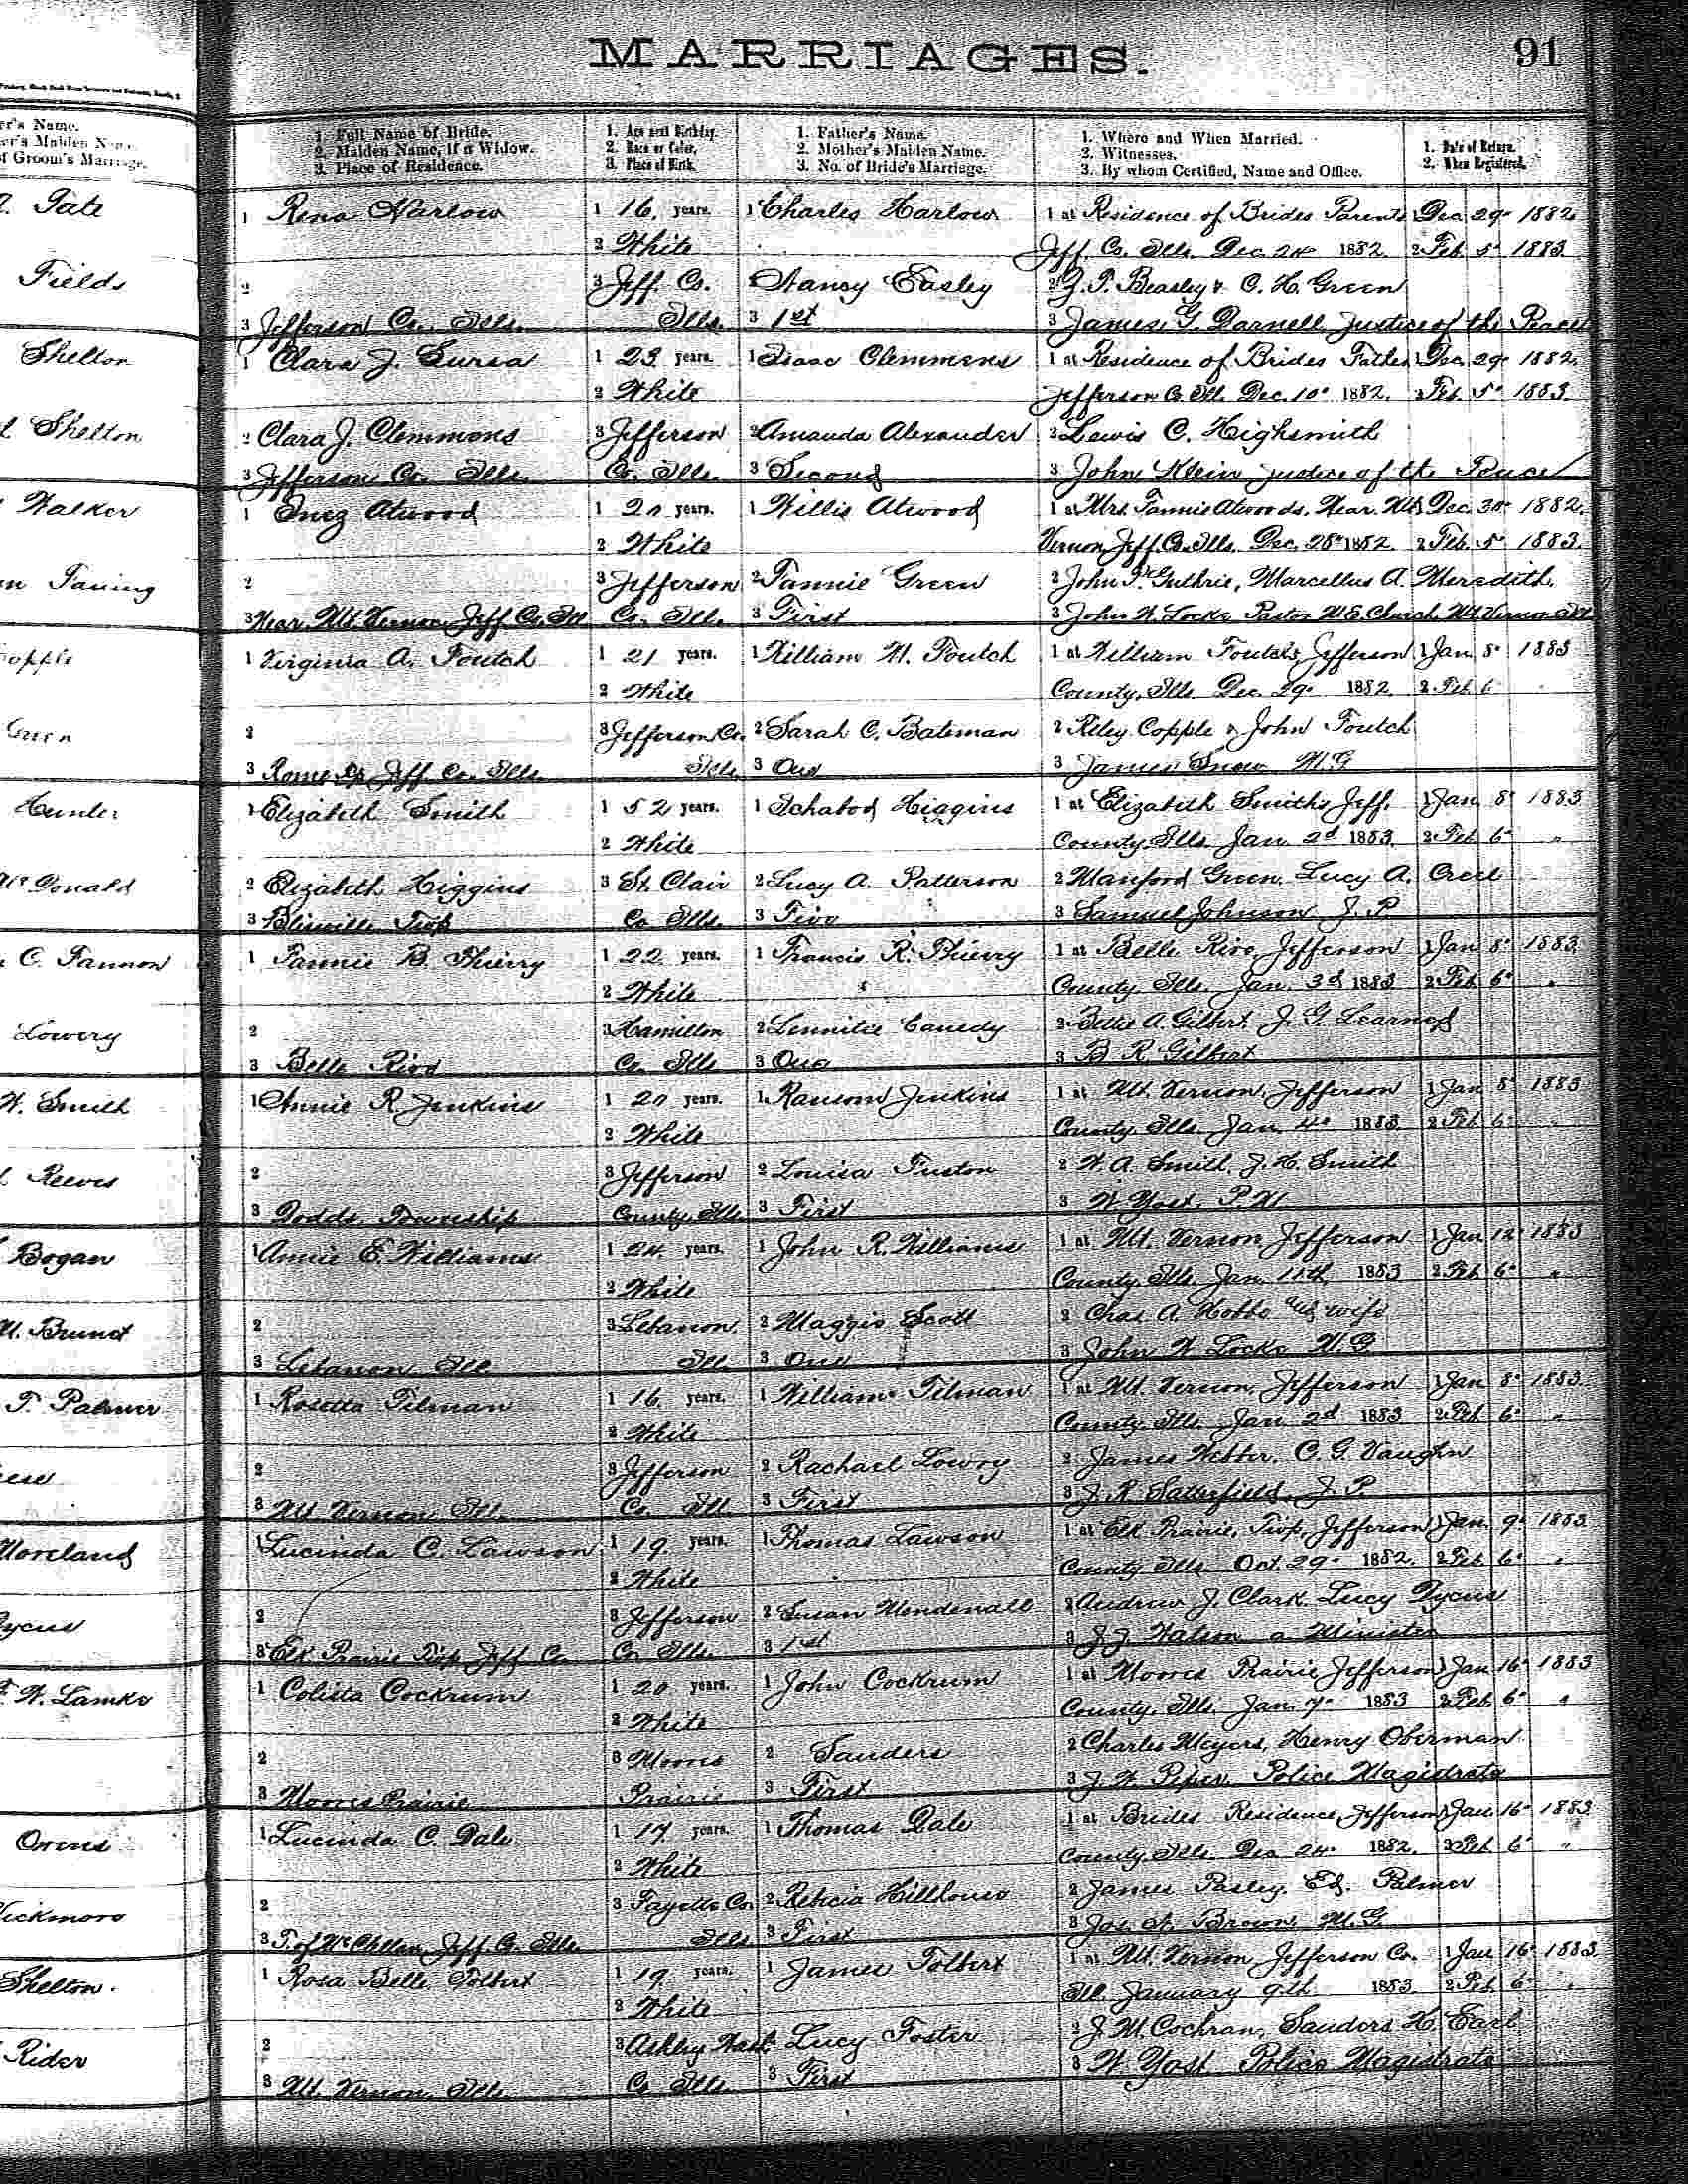 MARRIAGES.
91
1. Full Name of Bride.
2. Maiden Name, if a Widow.
3. Place of Residence.
1. Age next Birthday.
2. Race or Color.
3. Place of Birth.
1. Father's Name.
2. Mother's Maiden Name.
3. No. of Bride's Marriage.
1. Where and When Married.
2. Witnesses.
3. By whom Certified, Name and Office.
1. Date of Return.
2. When Registered.
er's Name.
er's Maiden Name.
of Groom's Marriage.
Tate
1 Rena Harlow 1 16 years. 1 Charles Harlow 1 at Residence of Brides Parents 1 Dec 29 1882
2 White Jeff. Co. Ills. Dec. 24 1882. 2 Feb 5 1883
Fields
2 3 Jeff. Co. Nancy Easley 2 Z. P. Beasley & C. H. Green
3 Jefferson Co. Ills. Ills. 3 1st 3 James G. Darnell Justice of the Peace
Shelton
1 Clara J. 1 23 years. 1 Isaac Clemmens 1 at Residence of Brides Father 1 Dec. 29 1882.
2 White Jefferson Co. Ill. Dec. 10 1882. 2 Feb. 5 1883.
Shelton
2 Clara J. Clemmons 3 Jefferson 2 Amanda Alexander 2 Lewis C. Highsmith
3 Jefferson Co. Ills. Co. Ills. 3 Second 3 John Klein Justice of the Peace
Walker
1 Inez Atwood 1 20 years. 1 Willis Atwood 1 at Mrs. Fannie Atwoods, Near Mt. Dec. 30 1882.
2 White Vernon Jeff. Co. Ills. Dec. 28 1882. 2 Feb. 5 1883.
2 3 Jefferson 2 Fannie Green 2 John Guthrie, Marcellus A. Meredith.
3 Near Mt. Vernon Jeff. Co. Ill Co. Ill. 3 First 3 John W. Locke Pastor M.E. Church Mt. Vernon Ill
opple
1 Virginia A. Foutch 1 21 years. 1 William M. Foutch 1 at William Foutch's Jefferson 1 Jan 8 1883
2 White County, Ills. Dec. 29 1882. 2 Feb 6
Green
2 3 Jefferson Co. 2 Sarah C. Bateman 2 Riley Copple & John Foutch
3 Rome Jeff. Co. Ills. Ills 3 One 3 James Snow M.G
Hunter
1 Elizabeth Smith 1 52 years. 1 Ichabod Higgins 1 at Elizabeth Smiths Jeff. 1 Jan 8 1883
2 White County, Ills. Jan 2d 1883. 2 Feb 6 "
McDonald
2 Elizabeth Higgins 3 St Clair 2 Lucy A. Patterson 2 Manford Green, Lucy A. Creel
3 Blissville Twp Co Ills. 3 Five 3 Samuel Johnson J. P.
C. Fannon
1 Fannie B. Thierry 1 22 years. 1 Francis R. Thierry 1 at Belle Rive, Jefferson 1 Jan 8 1883.
2 White County, Ills. Jan. 3d 1883 2 Feb 6 "
Lowery
2 3 Hamilton 2 Canedy 2 Bettie A. Gilbert, J. G. Learned
3 Belle Rive Co. Ills 3 One 3 B. R. Gilbert
W. Smith
1 Annie R. Jenkins 1 20 years. 1 Ransom Jenkins 1 at Mt. Vernon, Jefferson 1 Jan 8 1883
2 White County, Ills. Jan. 4 1883. 2 Feb 6
Reeves
2 3 Jefferson 2 Louisa Fuston 2 W. A. Smith, J. H. Smith
3 Dodds Township County, Ills. 3 First 3 W. Yost, P.M
Bogan
1 Annie E. Williams 1 24 years. 1 John R. Williams 1 at Mt. Vernon, Jefferson 1 Jan 12 1883
2 White County, Ills. Jan. 11th 1883 2 Feb. 6 "
M. Brunet
2 3 Lebanon, 2 Maggie Scott 2 Chas. A. Hobbs and wife
3 Lebanon Ill. Ill 3 One 3 John W. Locke M.G.
T. Palmer
1 Rosetta Tilman 1 16 years. 1 William Tilman 1 at Mt. Vernon, Jefferson 1 Jan 8 1883.
2 White County, Ills. Jan 2d 1883 2 Feb. 6 "
2 3 Jefferson 2 Rachael Lowry 2 James Webber, C. G. Vaughn
3 Mt. Vernon Ill. Co. Ill. 3 First 3 J. R. Satterfield, J. P.
Moreland
1 Lucinda C. Lawson 1 19 years. 1 Thomas Lawson 1 at Elk Prairie, Twp, Jefferson 1 Jan. 9 1883
2 White County, Ills. Oct. 29 1882. 2 Feb 6 "
Dycus
2 3 Jefferson 2 Susan Mendenall 2 Andrew J. Clark, Lucy Dycus
3 Elk Prairie Twp. Jeff Co. Co. Ills. 3 1st 3 J. J. Watson a Minister
W. Lamke
1 Colista Cockrum 1 20 years. 1 John Cockrum 1 at Moores Prairie Jefferson 1 Jan 16 1883
2 White County, Ills. Jan. 7 1883 2 Feb. 6 "
2 3 Moores 2 Sanders 2 Charles Meyers, Henry Oberman
3 Moores Prairie Prairie 3 First 3 J. W. Piper Police Magistrate
Owens
1 Lucinda C. Dale 1 17 years. 1 Thomas Dale 1 at Brides Residence, Jefferson 1 Jan 16 1883
2 White County, Ills. Dec 24 1882. 2 Feb 6 "
Vickmore
2 3 Fayette Co. 2 Hillhouse 2 James Pasley, Ed. Palmer
3 T. of McClellan, Jeff Co. Ills. Ills 3 First 3 Jos. A. Brown, M.G.
Shelton.
1 Rosa Belle Tolbert 1 19 years. 1 James Tolbert 1 at Mt. Vernon, Jefferson Co. 1 Jan 16 1883.
2 White Ill. January 9th 1883. 2 Feb 6 "
Rider
2 3 Ashley Wash. Lucy Foster 2 J. M. Cochran, Sanders H. Earl
3 Mt. Vernon, Ills. Co Ills. 3 First 3 W. Yost Police Magistrate